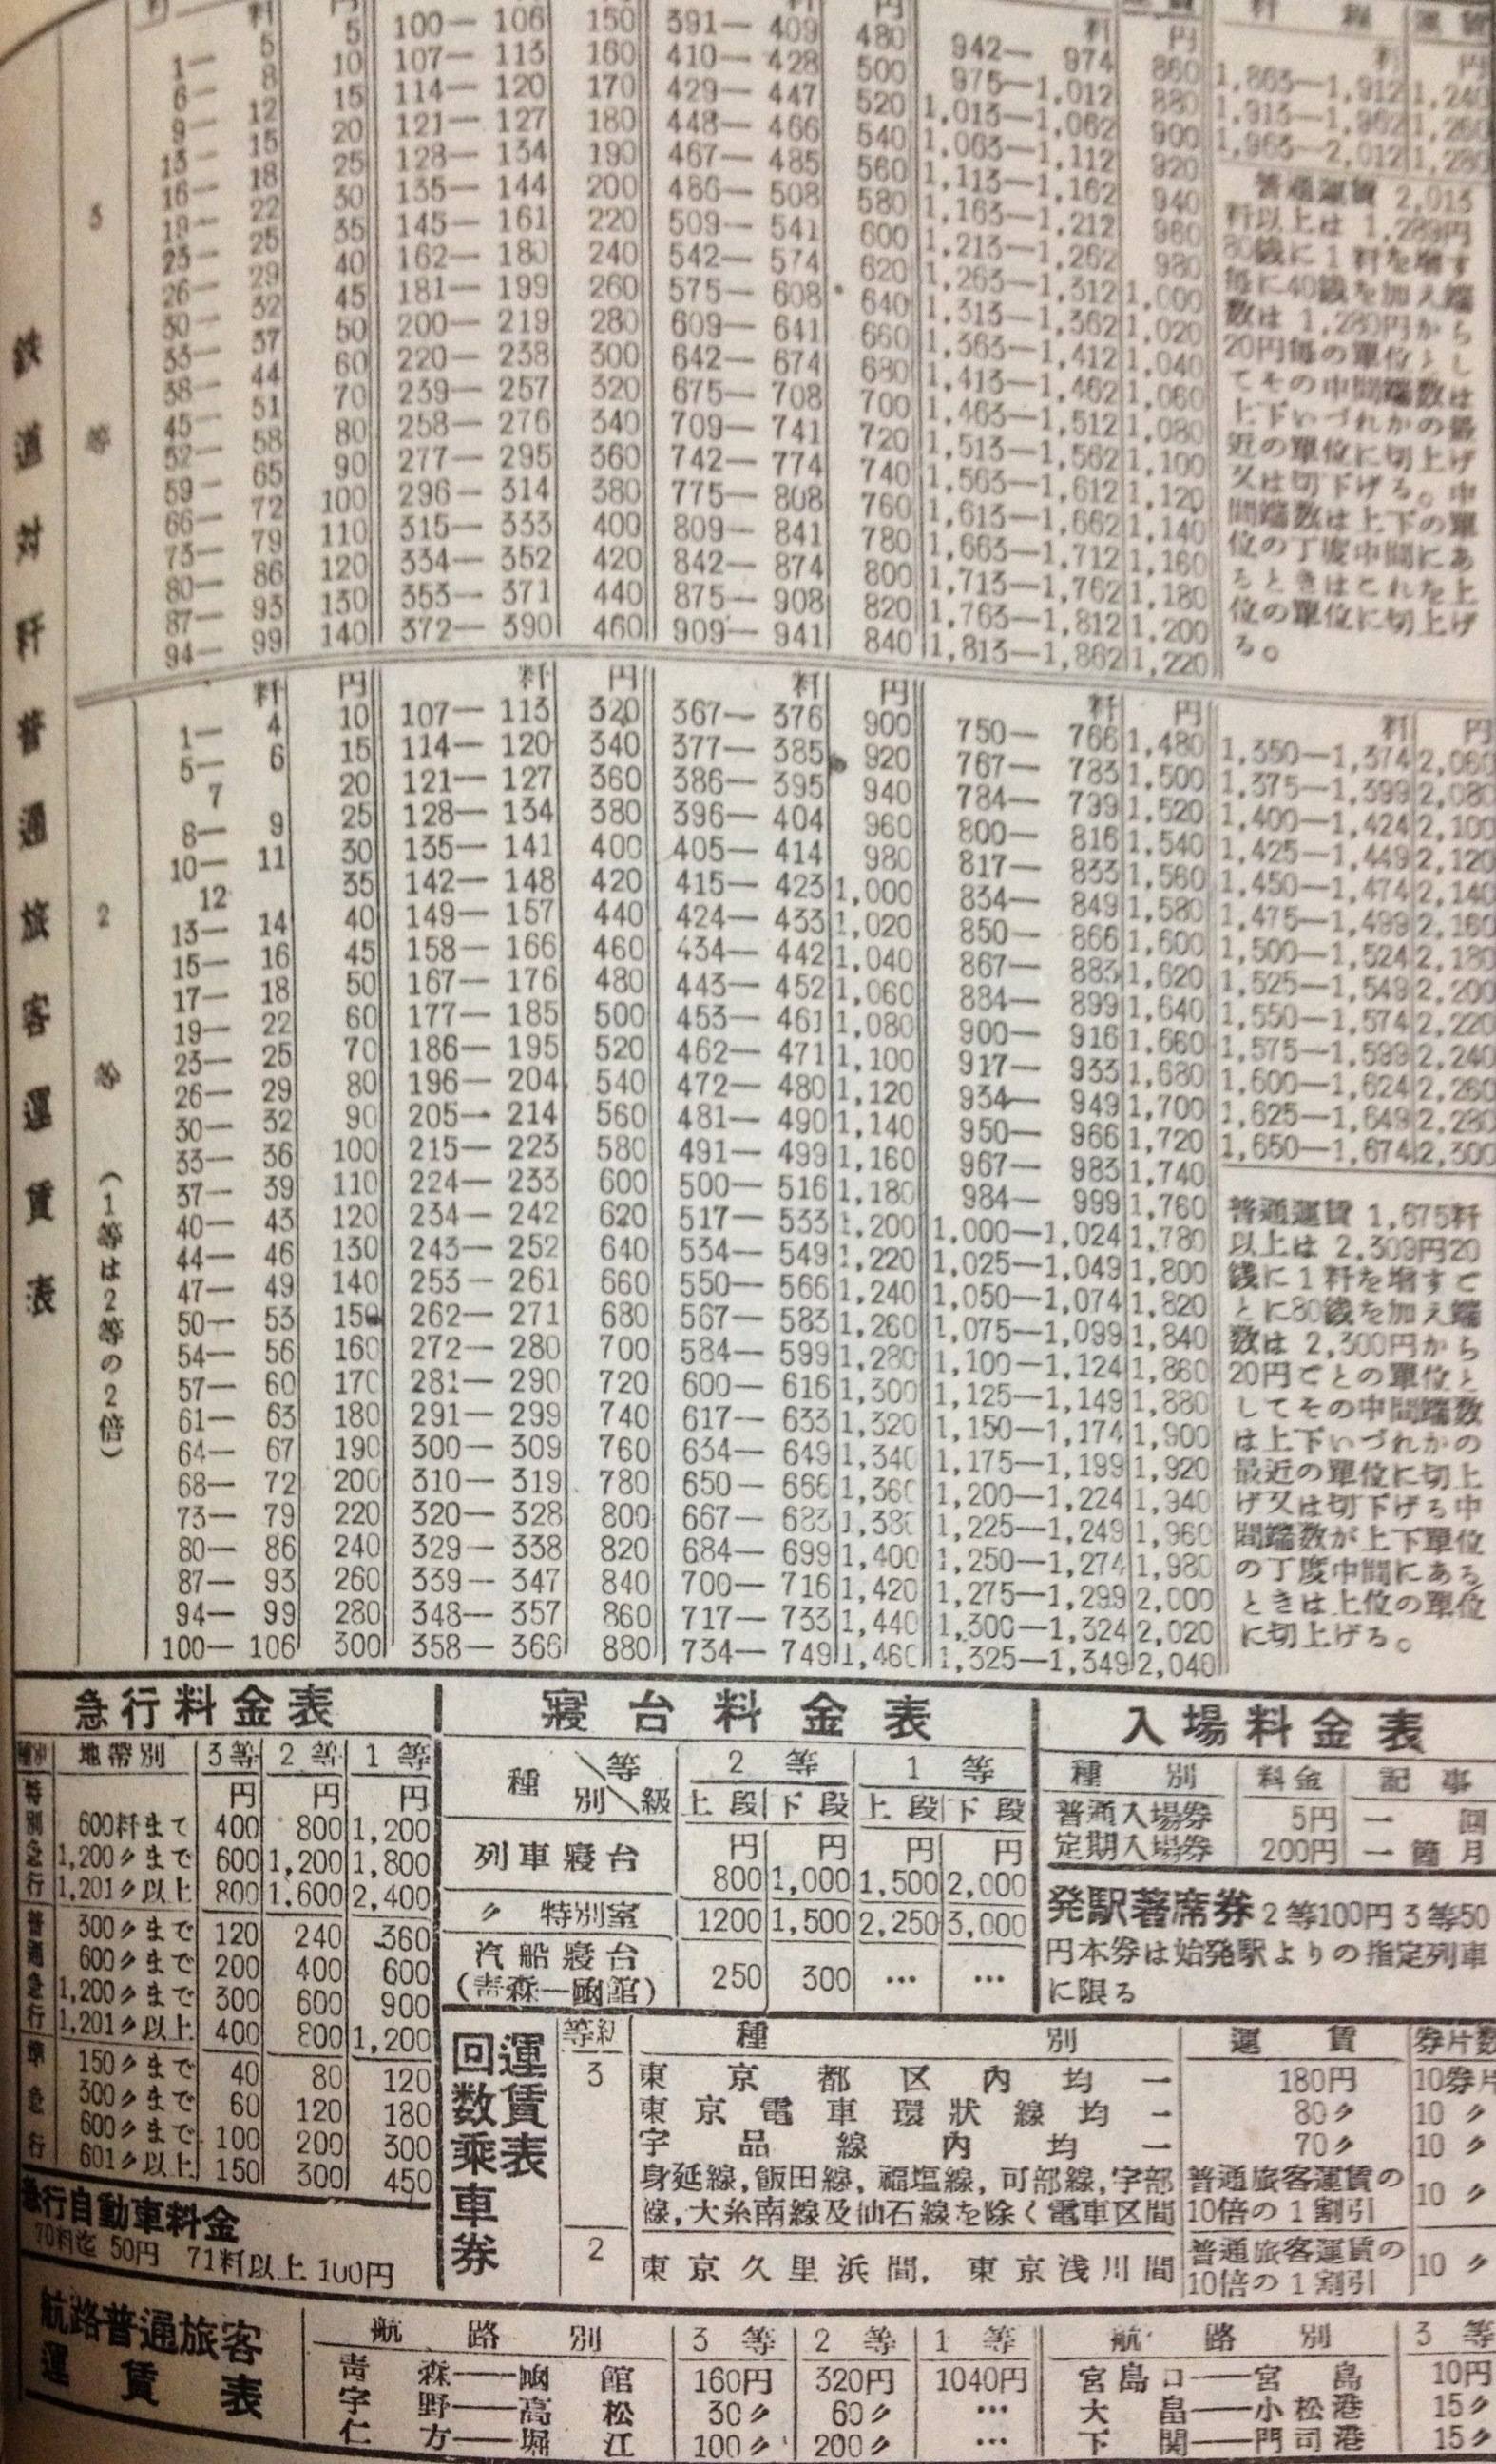 鉄道対粁普通旅客運賃表
3等
粁 円
1— 5 5
6— 8 10
9— 12 15
13— 15 20
16— 18 25
19— 22 30
23— 25 35
26— 29 40
30— 32 45
33— 37 50
38— 44 60
45— 51 70
52— 58 80
59— 65 90
66— 72 100
73— 79 110
80— 86 120
87— 93 130
94— 99 140
100— 106 150
107— 113 160
114— 120 170
121— 127 180
128— 134 190
135— 144 200
145— 161 220
162— 180 240
181— 199 260
200— 219 280
220— 238 300
239— 257 320
258— 276 340
277— 295 360
296— 314 380
315— 333 400
334— 352 420
353— 371 440
372— 390 460
391— 409 480
410— 428 500
429— 447 520
448— 466 540
467— 485 560
486— 508 580
509— 541 600
542— 574 620
575— 608 640
609— 641 660
642— 674 680
675— 708 700
709— 741 720
742— 774 740
775— 808 760
809— 841 780
842— 874 800
875— 908 820
909— 941 840
粁 円
942— 974 860
975—1,012 880
1,013—1,062 900
1,063—1,112 920
1,113—1,162 940
1,163—1,212 960
1,213—1,262 980
1,263—1,312 1,000
1,313—1,362 1,020
1,363—1,412 1,040
1,413—1,462 1,060
1,463—1,512 1,080
1,513—1,562 1,100
1,563—1,612 1,120
1,613—1,662 1,140
1,663—1,712 1,160
1,713—1,762 1,180
1,763—1,812 1,200
1,813—1,862 1,220
粁程 運賃
粁 円
1,863—1,912 1,240
1,913—1,962 1,260
1,963—2,012 1,280
普通運賃 2,013
粁以上は 1,289円
80銭に1粁を増す
毎に40銭を加え端
数は 1,280円から
20円毎の單位とし
てその中間端数は
上下いづれかの最
近の單位に切上げ
又は切下げる。中
間端数は上下の單
位の丁度中間にあ
るときはこれを上
位の單位に切上げ
る。
2等（1等は2等の2倍）
粁 円
1— 4 10
5— 6 15
7 20
8— 9 25
10— 11 30
12 35
13— 14 40
15— 16 45
17— 18 50
19— 22 60
23— 25 70
26— 29 80
30— 32 90
33— 36 100
37— 39 110
40— 43 120
44— 46 130
47— 49 140
50— 53 150
54— 56 160
57— 60 170
61— 63 180
64— 67 190
68— 72 200
73— 79 220
80— 86 240
87— 93 260
94— 99 280
100— 106 300
粁 円
107— 113 320
114— 120 340
121— 127 360
128— 134 380
135— 141 400
142— 148 420
149— 157 440
158— 166 460
167— 176 480
177— 185 500
186— 195 520
196— 204 540
205— 214 560
215— 223 580
224— 233 600
234— 242 620
243— 252 640
253— 261 660
262— 271 680
272— 280 700
281— 290 720
291— 299 740
300— 309 760
310— 319 780
320— 328 800
329— 338 820
339— 347 840
348— 357 860
358— 366 880
粁 円
367— 376 900
377— 385 920
386— 395 940
396— 404 960
405— 414 980
415— 423 1,000
424— 433 1,020
434— 442 1,040
443— 452 1,060
453— 461 1,080
462— 471 1,100
472— 480 1,120
481— 490 1,140
491— 499 1,160
500— 516 1,180
517— 533 1,200
534— 549 1,220
550— 566 1,240
567— 583 1,260
584— 599 1,280
600— 616 1,300
617— 633 1,320
634— 649 1,340
650— 666 1,360
667— 683 1,380
684— 699 1,400
700— 716 1,420
717— 733 1,440
734— 749 1,460
粁 円
750— 766 1,480
767— 783 1,500
784— 799 1,520
800— 816 1,540
817— 833 1,560
834— 849 1,580
850— 866 1,600
867— 883 1,620
884— 899 1,640
900— 916 1,660
917— 933 1,680
934— 949 1,700
950— 966 1,720
967— 983 1,740
984— 999 1,760
1,000—1,024 1,780
1,025—1,049 1,800
1,050—1,074 1,820
1,075—1,099 1,840
1,100—1,124 1,860
1,125—1,149 1,880
1,150—1,174 1,900
1,175—1,199 1,920
1,200—1,224 1,940
1,225—1,249 1,960
1,250—1,274 1,980
1,275—1,299 2,000
1,300—1,324 2,020
1,325—1,349 2,040
粁 円
1,350—1,374 2,060
1,375—1,399 2,080
1,400—1,424 2,100
1,425—1,449 2,120
1,450—1,474 2,140
1,475—1,499 2,160
1,500—1,524 2,180
1,525—1,549 2,200
1,550—1,574 2,220
1,575—1,599 2,240
1,600—1,624 2,260
1,625—1,649 2,280
1,650—1,674 2,300
普通運賃 1,675粁
以上は 2,309円20
銭に1粁を増すご
とに80銭を加え端
数は 2,300円から
20円ごとの單位と
してその中間端数
は上下いづれかの
最近の單位に切上
げ又は切下げる中
間端数が上下單位
の丁度中間にある
ときは上位の單位
に切上げる。
急行料金表
種別 地帶別 3等 2等 1等
円 円 円
特別急行
600粁まで 400 800 1,200
1,200〃まで 600 1,200 1,800
1,201〃以上 800 1,600 2,400
普通急行
300〃まで 120 240 360
600〃まで 200 400 600
1,200〃まで 300 600 900
1,201〃以上 400 800 1,200
準急行
150〃まで 40 80 120
300〃まで 60 120 180
600〃まで 100 200 300
601〃以上 150 300 450
急行自動車料金
70粁迄 50円 71粁以上 100円
寢台料金表
種別＼等級 2等 1等
上段 下段 上段 下段
円 円 円 円
列車寢台 800 1,000 1,500 2,000
〃 特別室 1200 1,500 2,250 3,000
汽船寢台
(靑森—凾館) 250 300 … …
入場料金表
種別 料金 記事
普通入場券 5円 一回
定期入場券 200円 一箇月
発駅著席券 2等100円 3等50
円本券は始発駅よりの指定列車
に限る
回数乘車券
運賃表
等級 種別 運賃 券片数
3 東京都区内均一 180円 10券片
東京電車環狀線均一 80〃 10〃
宇品線内均一 70〃 10〃
身延線,飯田線,福塩線,可部線,宇部 普通旅客運賃の
線,大糸南線及仙石線を除く電車区間 10倍の1割引 10〃
2 東京久里浜間，東京浅川間 普通旅客運賃の
10倍の1割引 10〃
航路普通旅客
運賃表
航路別 3等 2等 1等
靑森——凾館 160円 320円 1040円
宇野——高松 30〃 60〃 …
仁方——堀江 100〃 200〃 …
航路別 3等
宮島口——宮島 10円
大畠——小松港 15〃
下関——門司港 15〃